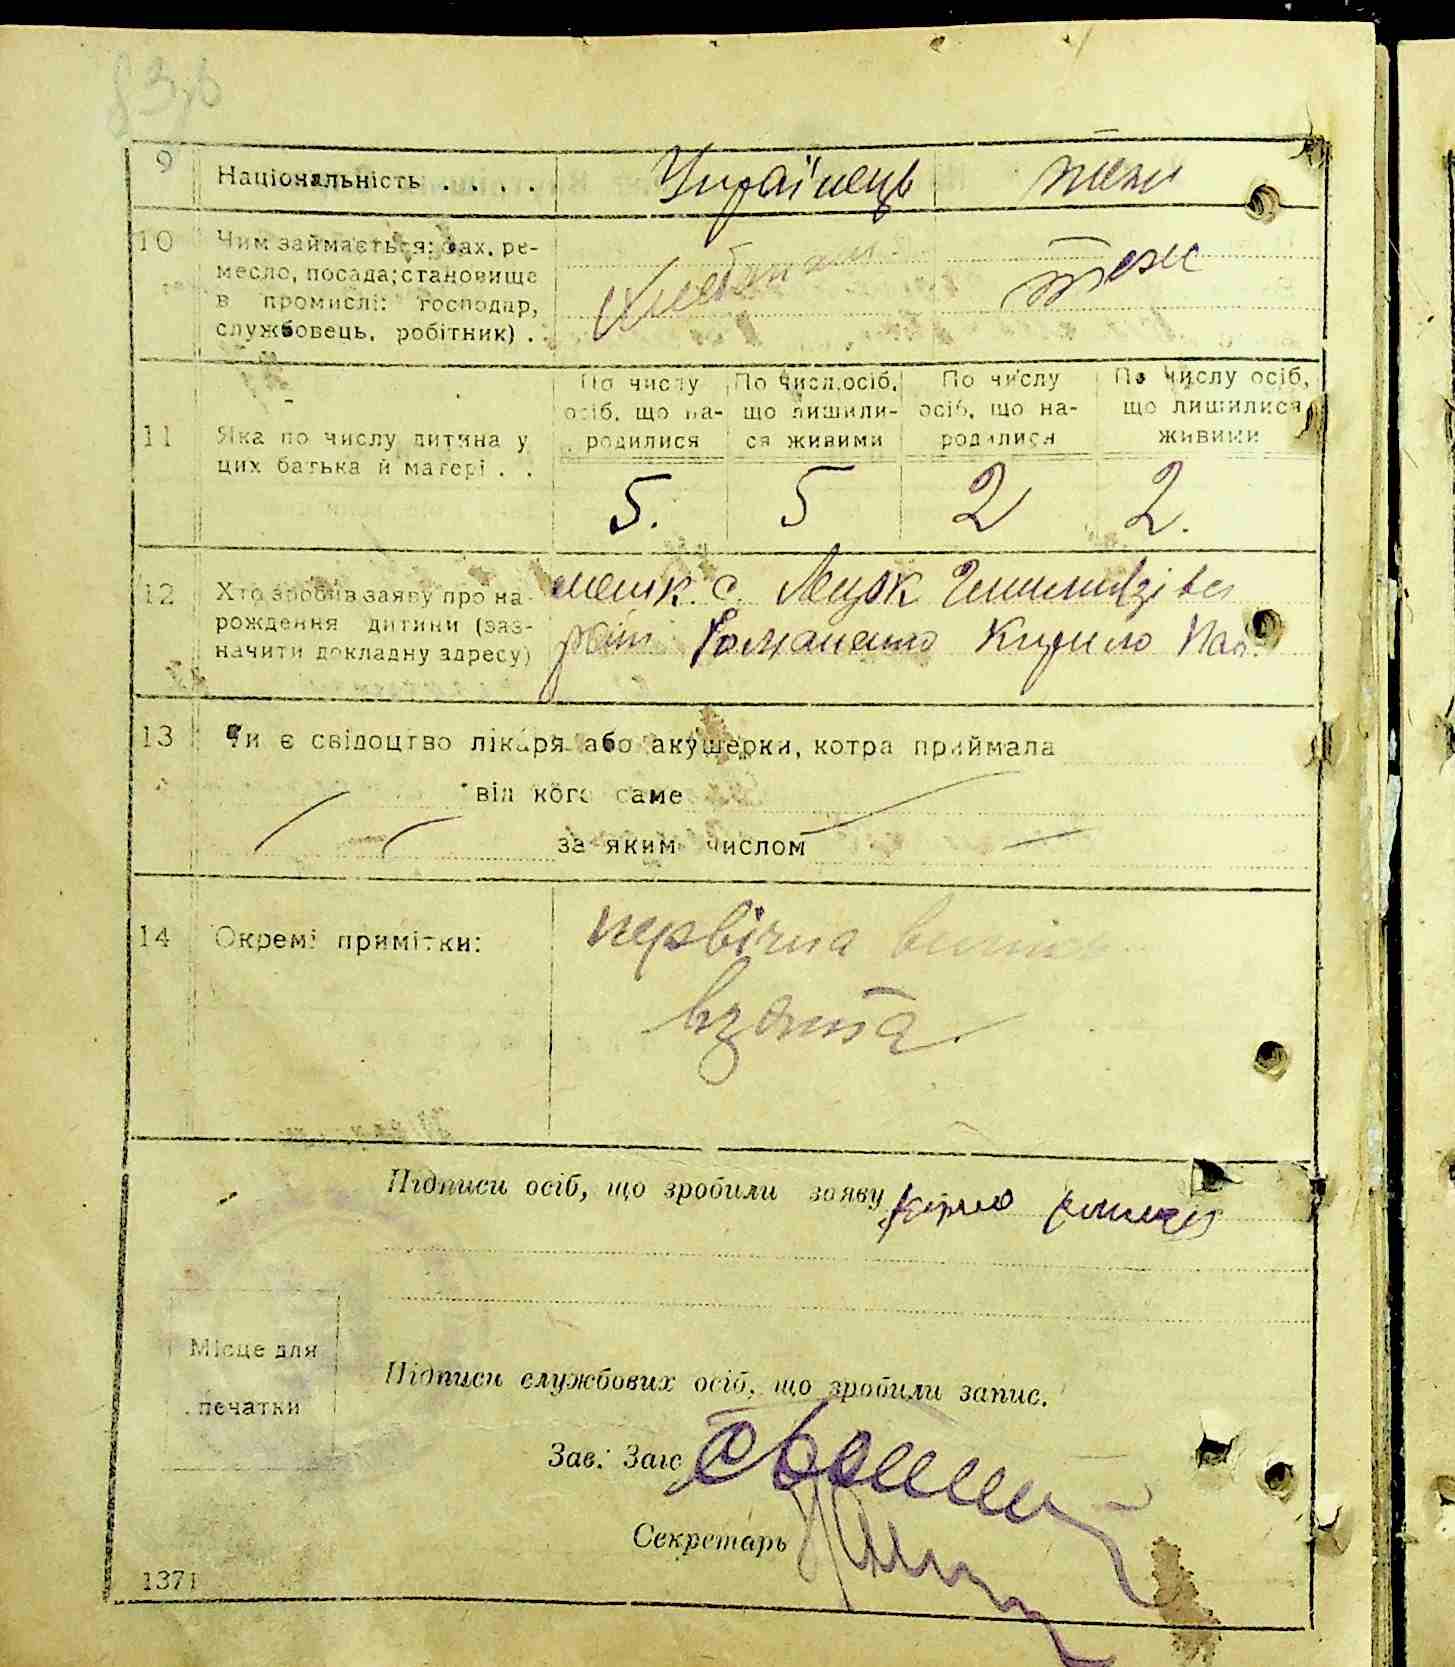 9 Національність . . . . Українець теж
10 Чим займається: фах, ре-
месло, посада; становище
в промислі: господар,
службовець, робітник) . теж
11 Яка по числу дитина у
цих батька й матері . .
По числу осіб, що на- родилися
По числ. осіб, що лишили- ся живими
По числу осіб, що на- родилися
По числу осіб, що лишилися живими
5. 5 2 2.
12 Хто зробив заяву про на-
рождення дитини (заз-
начити докладну адресу)
мешк. с.
Романенко Кирило Пав.
13 Чи є свідоцтво лікаря або акушерки, котра приймала
від кого саме
за яким числом
14 Окремі примітки: первічна
взята.
Підписи осіб, що зробили заяву
Місце для
печатки
Підписи службових осіб, що зробили запис.
Зав. Загс
Секретарь
1371